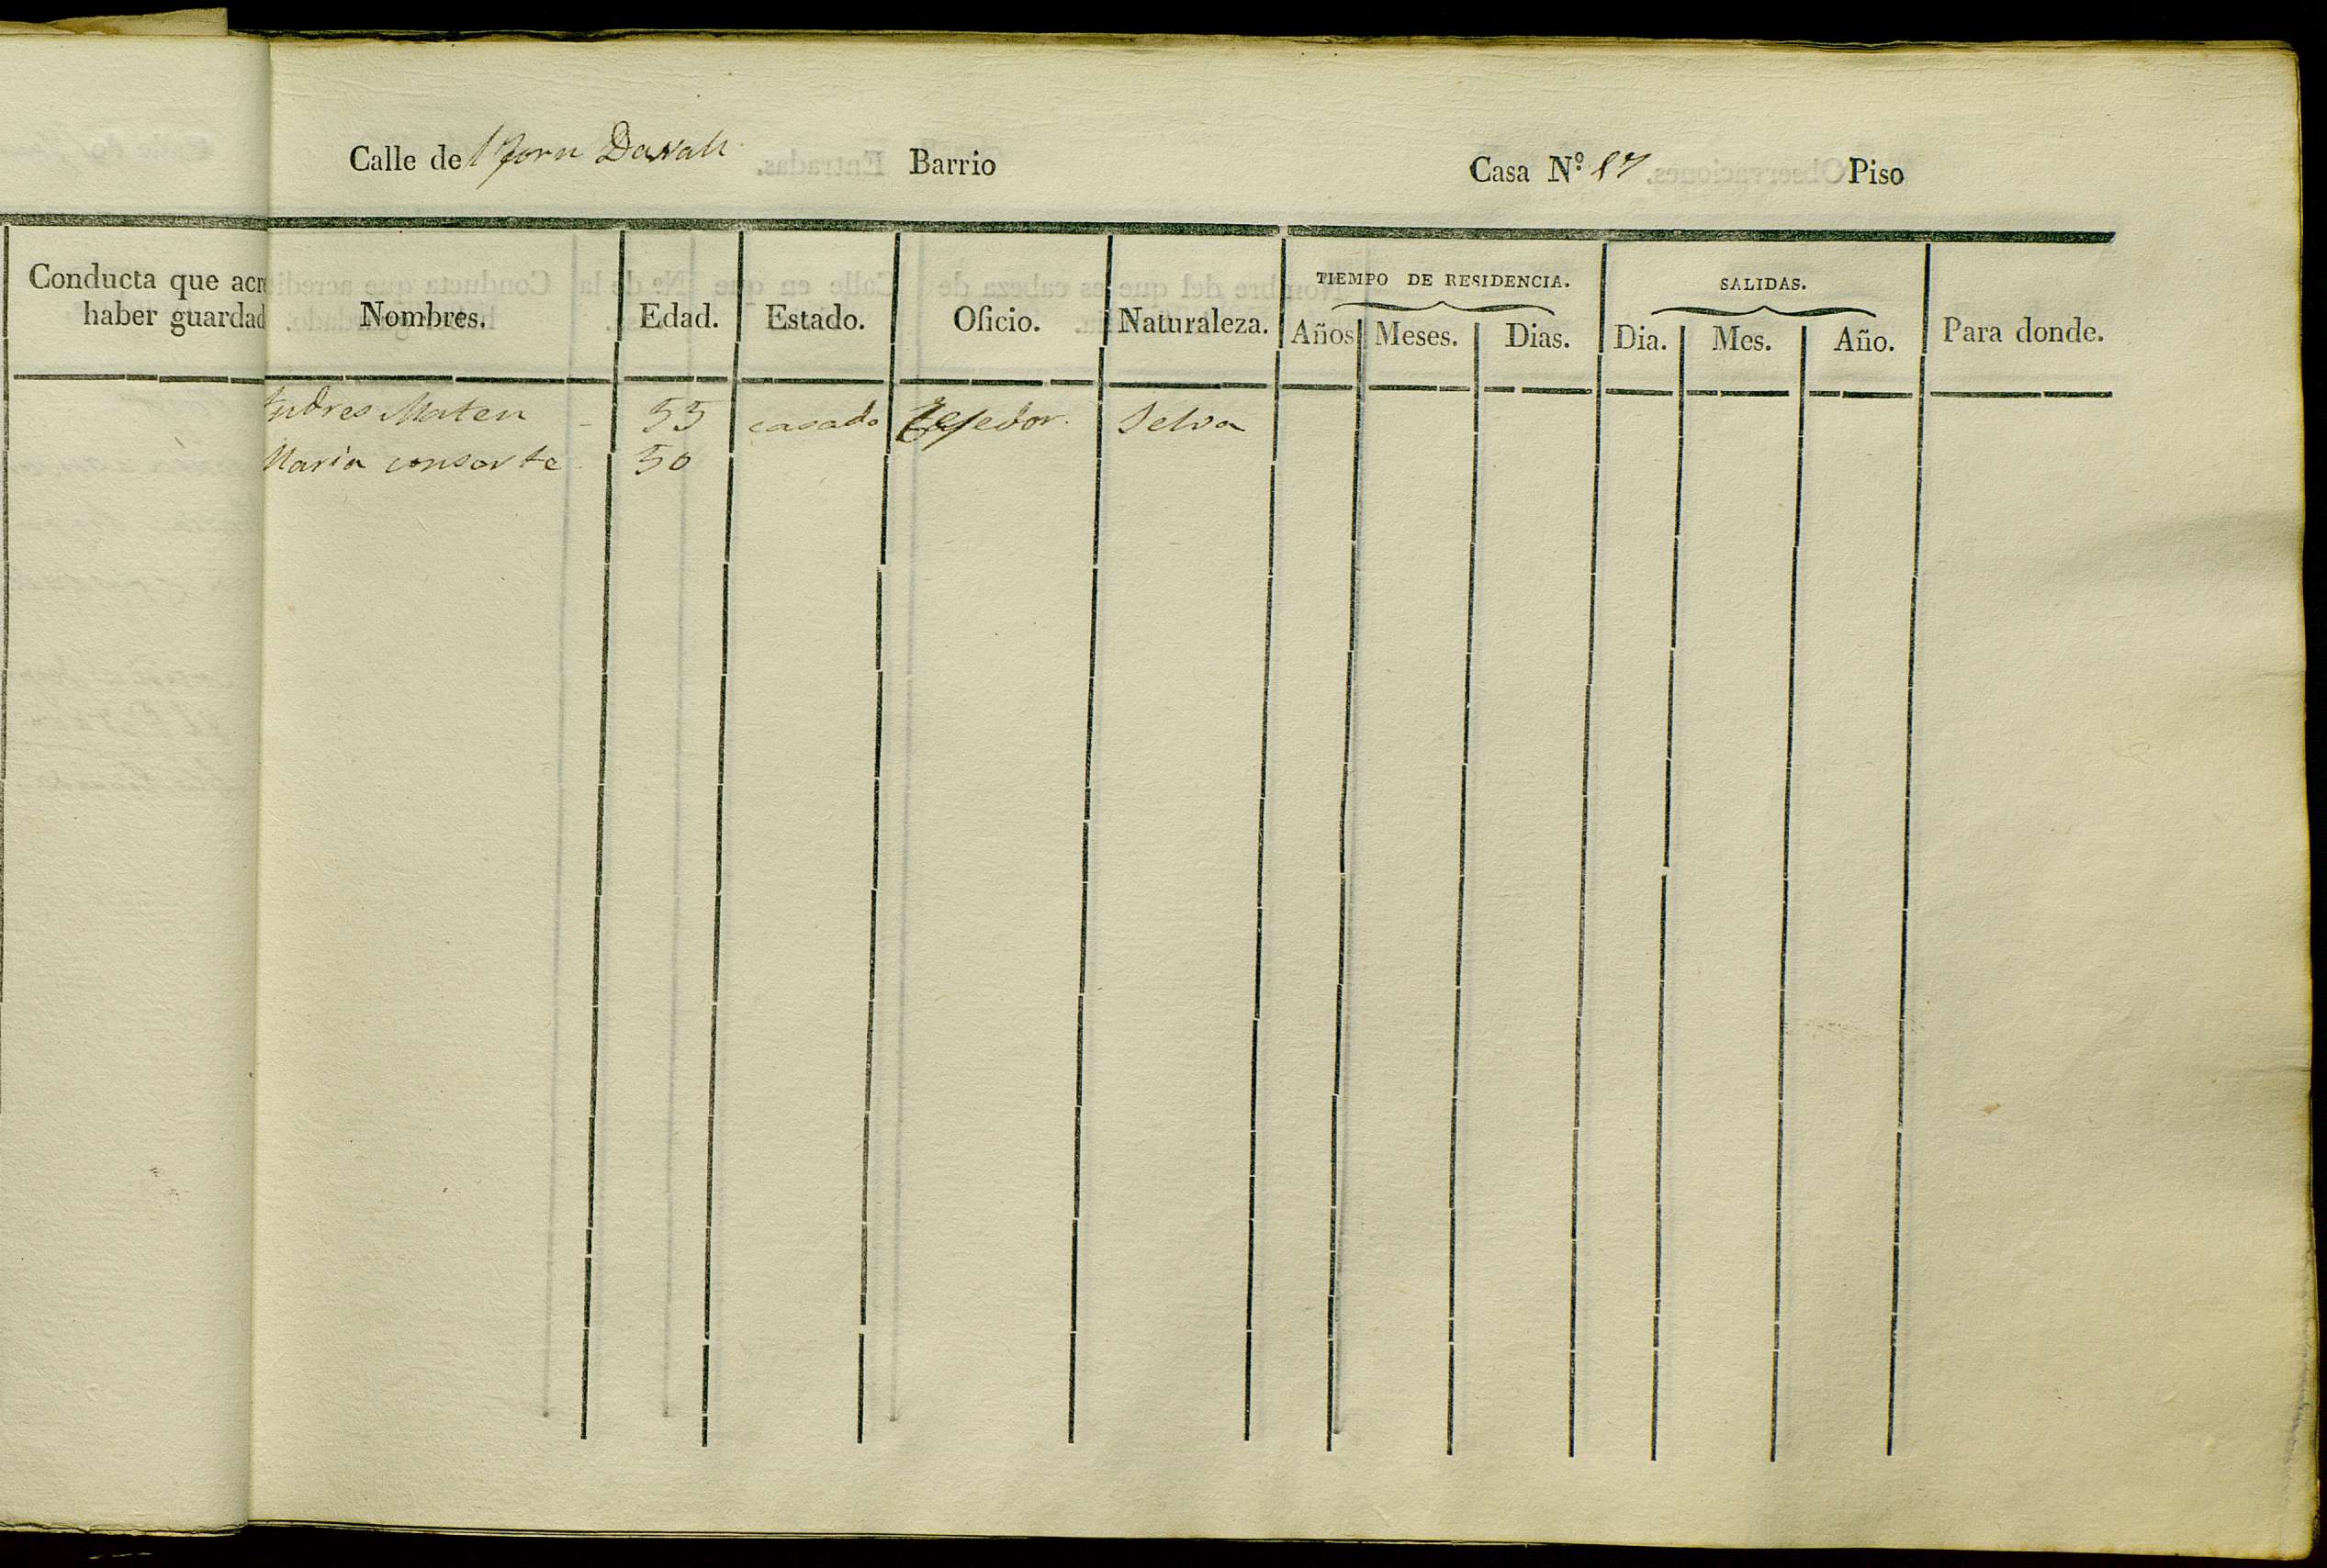 Calle del forn Davall Barrio Casa N.º 17 Piso
Conducta que acre
haber guardad
Nombres. Edad. Estado. Oficio. Naturaleza. TIEMPO DE RESIDENCIA. SALIDAS. Para donde.
Años Meses. Dias. Dia. Mes. Año.
Andres Mateu 55 casado Tejedor. Selva
Maria consorte 50